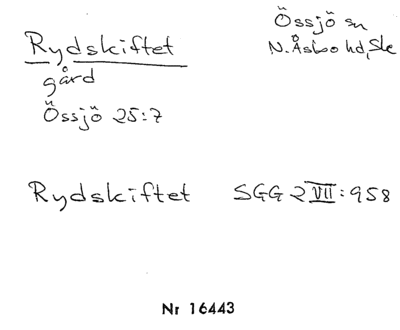 Rydskiftet
gård
Össjö 25:7
Össjö sn
N. Åsbo hd, Ske
Rydskiftet SGG 2 VII:958
Nr 16443